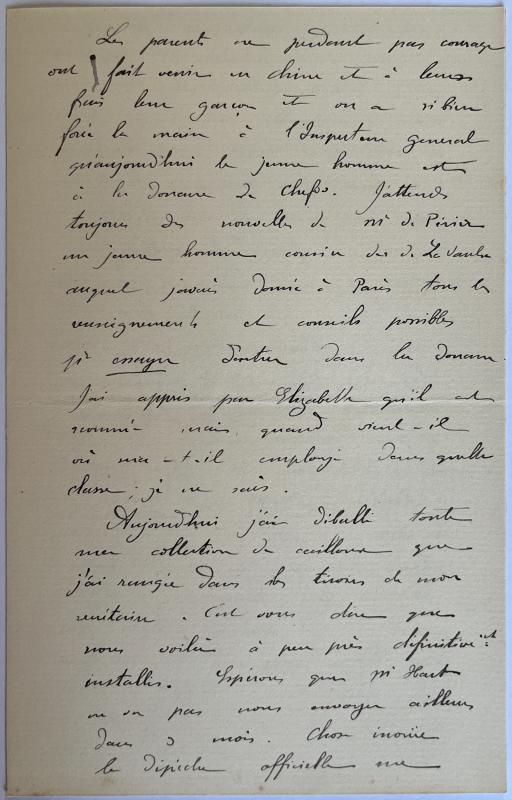 Les parents ne perdant pas courage
ont fait venir en chine et à leurs
frais leur garçon et on a si bien
forcé la main à l'Inspecteur general
qu'aujourd'hui le jeune homme est
à la douane de Chefoo. J'attends
toujours des nouvelles de Mr de
un jeune homme cousin des de La
auquel j'avais donné à Paris tous les
renseignements et conseils possibles
pr essayer d'entrer dans la douane.
J'ai appris par Elizabeth qu'il est
nommé mais quand vient-il
où va-t-il employé dans quelle
classe; je ne sais.
Aujourd'hui j'ai déballé toute
ma collection de cailloux que
j'ai rangée dans les tiroirs de mon
secrétaire. C'est vous dire que
nous voilà à peu près définitivent
installés. Espérons que Mr Hart
ne va pas nous envoyer ailleurs
dans 3 mois. Chose inouïe
la dépêche officielle me